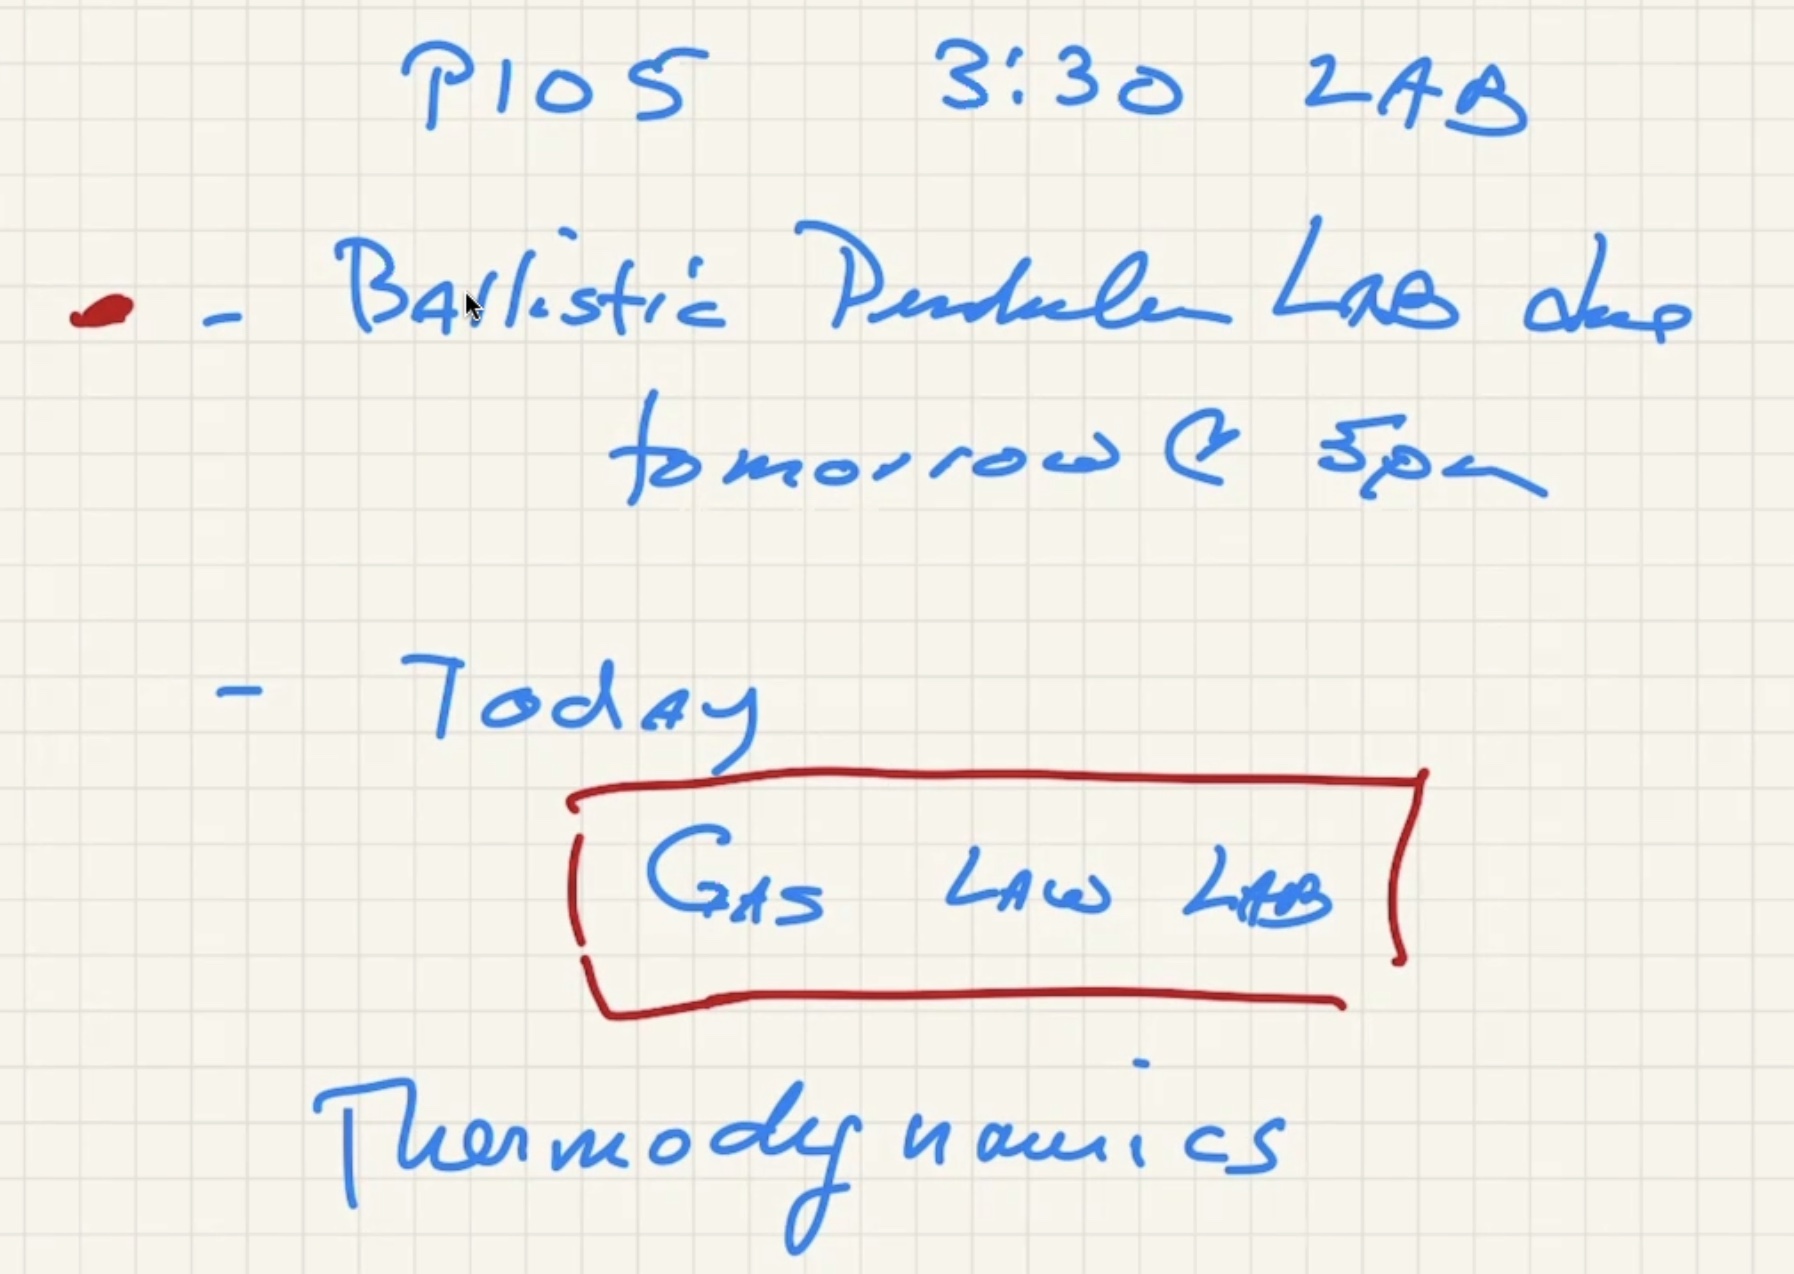 P105 3:30 LAB
- Ballistic Pendulum LAB due
tomorrow @ 5pm
- Today
GAS LAW LAB
Thermodynamics